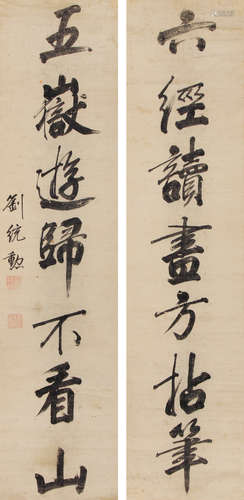 六經讀畫方拈筆
五嶽遊歸不看山
劉統勳